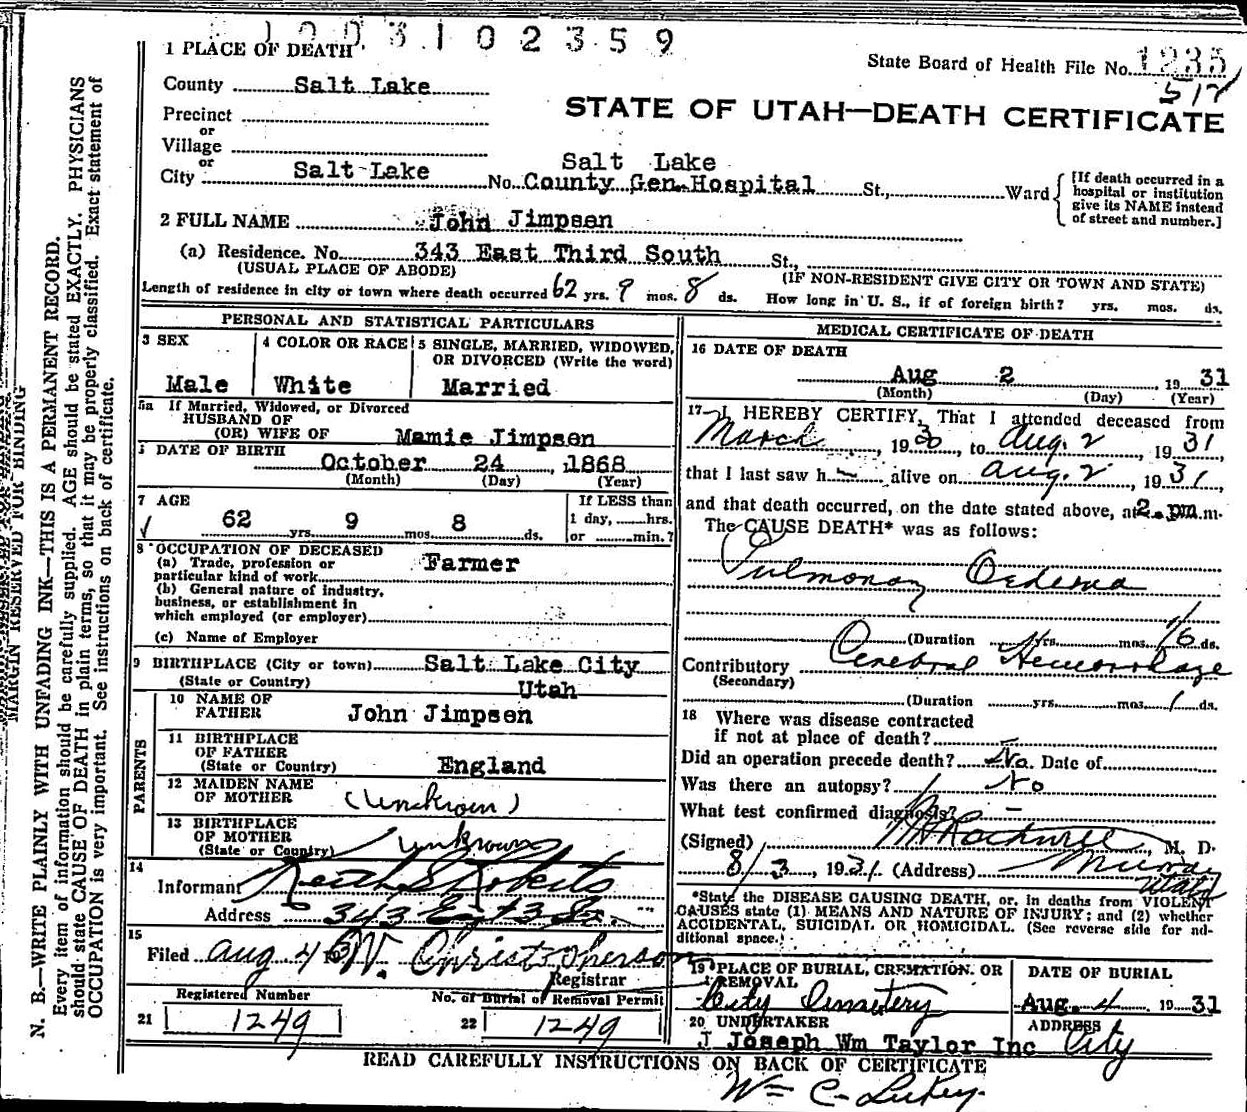 1003102359
1 PLACE OF DEATH
State Board of Health File No. 1235
517
County Salt Lake
STATE OF UTAH—DEATH CERTIFICATE
Precinct
or
Village
or
City Salt Lake No. Salt Lake County Gen. Hospital St., Ward
[If death occurred in a
hospital or institution
give its NAME instead
of street and number.]
2 FULL NAME John Jimpsen
(a) Residence. No. 343 East Third South St.,
(USUAL PLACE OF ABODE) (IF NON-RESIDENT GIVE CITY OR TOWN AND STATE)
Length of residence in city or town where death occurred 62 yrs. 9 mos. 8 ds. How long in U. S., if of foreign birth? yrs. mos. ds.
PERSONAL AND STATISTICAL PARTICULARS
3 SEX
Male
4 COLOR OR RACE
White
5 SINGLE, MARRIED, WIDOWED,
OR DIVORCED (Write the word)
Married
5a If Married, Widowed, or Divorced
HUSBAND OF
(OR) WIFE OF Mamie Jimpsen
DATE OF BIRTH
October 24, 1868
(Month) (Day) (Year)
7 AGE
62 yrs. 9 mos. 8 ds.
If LESS than
1 day, hrs.
or min.?
8 OCCUPATION OF DECEASED
(a) Trade, profession or
particular kind of work Farmer
(b) General nature of industry,
business, or establishment in
which employed (or employer)
(c) Name of Employer
9 BIRTHPLACE (City or town) Salt Lake City
(State or Country) Utah
PARENTS
10 NAME OF
FATHER John Jimpsen
11 BIRTHPLACE
OF FATHER
(State or Country) England
12 MAIDEN NAME
OF MOTHER (unknown)
13 BIRTHPLACE
OF MOTHER
(State or Country) unknown
14
Informant Keith S Roberts
Address 343 East 3 So.
15
Filed Aug 4 W. Christopherson
Registrar
Registered Number
21 1249
No. of Burial or Removal Permit
22 1249
MEDICAL CERTIFICATE OF DEATH
16 DATE OF DEATH
Aug 2, 1931
(Month) (Day) (Year)
17 I HEREBY CERTIFY, That I attended deceased from
March, 1930, to Aug. 2, 1931,
that I last saw h alive on Aug. 2, 1931,
and that death occurred, on the date stated above, at 2. pm m.
The CAUSE DEATH* was as follows:
Pulmonary Oedema
(Duration yrs. mos. ds.
Contributory Cerebral Hemorrhage
(Secondary)
(Duration yrs. mos. 1 ds.
18 Where was disease contracted
if not at place of death? —
Did an operation precede death? No. Date of
Was there an autopsy? No
What test confirmed diagnosis? —
(Signed) Rockwell, M. D.
8/3, 1931 (Address) Utah
*State the DISEASE CAUSING DEATH, or, in deaths from VIOLENT
CAUSES state (1) MEANS AND NATURE OF INJURY; and (2) whether
ACCIDENTAL, SUICIDAL OR HOMICIDAL. (See reverse side for ad-
ditional space.)
19 PLACE OF BURIAL, CREMATION. OR
REMOVAL
City Cemetery
DATE OF BURIAL
Aug. 4 1931
20 UNDERTAKER
J Joseph Wm Taylor Inc
ADDRESS
City
READ CAREFULLY INSTRUCTIONS ON BACK OF CERTIFICATE
Wm C.
MARGIN RESERVED FOR BINDING
N. B.—WRITE PLAINLY WITH UNFADING INK—THIS IS A PERMANENT RECORD.
Every item of information should be carefully supplied. AGE should be stated EXACTLY. PHYSICIANS
should state CAUSE OF DEATH in plain terms, so that it may be properly classified. Exact statement of
OCCUPATION is very important. See instructions on back of certificate.